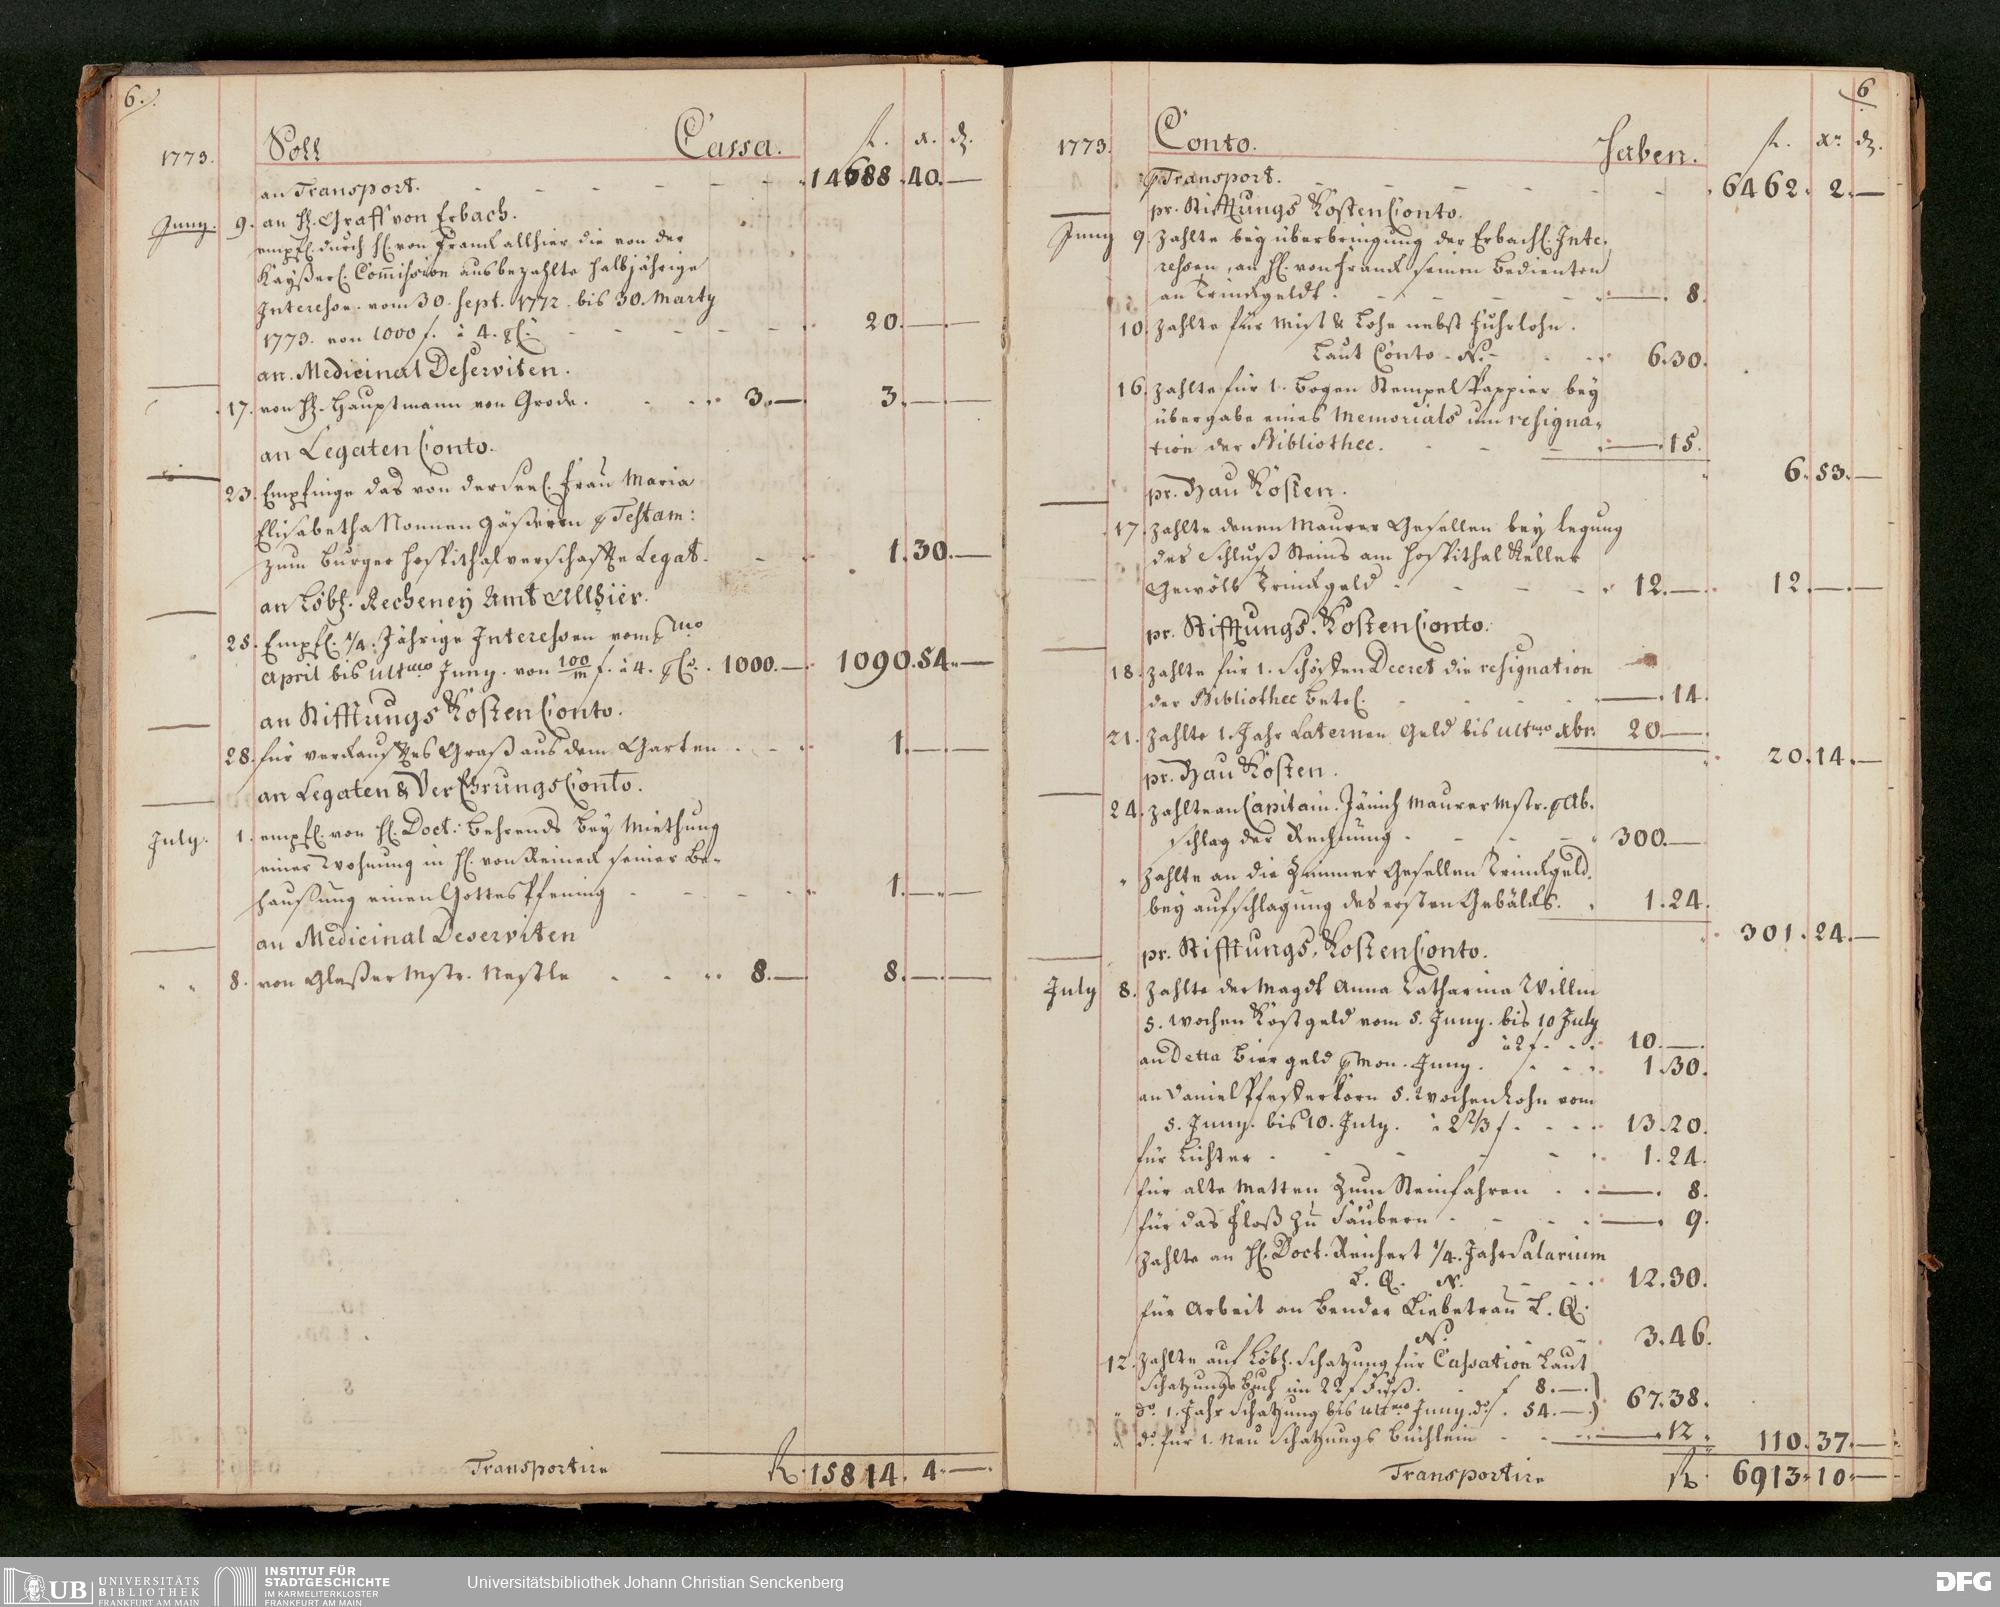 6.
1773. Soll Cassa. fl. x. d.
an Transport. 14688. 40.
Juny. 9. an H. Graff von Erbach.
empf. durch H. von Franck allhier die von der
Kayserl. Commission ausbezahlte halbjährige
Interesse. vom 30. Sept. 1772. bis 30. Marty
1773. von 1000 f. à 4. pC. 20.
an Medicinal Deserviten.
17. von H. Hauptmann von Grode. 3. 3.
an Legaten Conto.
23. Empfinge das von der Seel. Frau Maria
Elisabetha Nonnen Gässerin p Testam:
zum Burger Hospithal verschaffte Legat. 1. 30.
an Löbl. Recheney Amt Allhier.
25. Empf. 1/4. Jährige Interessen vom pmo
April bis ultmo Juny. von 100/m f. à 4. pCo. 1000. 1090. 54.
an Stifftungs Kosten Conto.
28. für verkaufftes Graß aus dem Garten 1.
an Legaten & Verehrungs Conto.
July. 1. empf. von H. Doct. Behrends bey Miethung
einer Wohnung in H. von Reineck seiner Be-
haussung einen Gottes Pfening 1.
an Medicinal Deserviten
8. von Glaßer Mstr. Nestle 8. 8.
Transportire fl. 15814. 4.
6
1773. Conto. Haben. fl. xr. d.
p Transport. 6462. 2.
pr. Stifftungs Kosten Conto.
Juny 9. Zahlte bey überbringung der Erbachl. Inte-
ressen, an H. von Franck seinen Bedienten
an Trinckgeldt. 8.
10. Zahlte für Mist & Lohe nebst Fuhrlohn.
Laut Conto N. 6.30.
16. Zahlte für 1. Bogen Stempel Pappier bey
übergabe eines Memorials um resigna-
tion der Bibliothec. 15.
6. 53.
pr. Bau Kosten.
17. Zahlte denen Maurer Gesellen bey legung
des Schluß Steins am Hospithal Keller
Gewölb Trinckgeld 12. 12.
pr. Stifftungs. Kosten Conto.
18. Zahlte für 1. Schöffen Decret die resignation
der Bibliothec betrl. 14.
21. Zahlte 1. Jahr Laternen Geld bis ultmo Xbr. 20.
20. 14.
pr. Bau Kosten.
24. Zahlte an Capitain Jänich Maurer Mstr. p Ab-
schlag der Rechnung 300.
" Zahlte an die Zimmer Gesellen Trinckgeld
bey aufschlagung des ersten Gebälcks. 1. 24.
301. 24.
pr. Stifftungs. Kosten Conto.
July 8. Zahlte der Magdt Anna Catharina Willin
5. Wochen Kostgeld vom 5. Juny. bis 10 July
à 2 f. 10.
an Detta Biergeld p Mon. Juny. 1.30.
an Daniel Pfefferkorn 5. Wochen Lohn vom
5. Juny. bis 10. July. à 2 2/3 f. 13.20.
für Lichter 1. 24.
für alte Matten zum Steinfahren 8.
für das Floß zu Säubern 9.
Zahlte an H. Doct. Reichert 1/4. Jahr Salarium
L. Q. N. 12.30.
für Arbeit an Bender Liebetrau L. Q.
N. 3.46.
12. Zahlte auf Löbl. Schatzung für Cassation Laut
Schatzungs Buch im 22 f Fuß. f 8. 67.38.
" do. 1. Jahr Schatzung bis ultmo Juny. do. 54.
" do. für 1. Neu Schatzungs Büchlein 12
110. 37.
Transportire fl. 6913. 10.
UB UNIVERSITÄTS
BIBLIOTHEK
FRANKFURT AM MAIN
INSTITUT FÜR
STADTGESCHICHTE
IM KARMELITERKLOSTER
FRANKFURT AM MAIN
Universitätsbibliothek Johann Christian Senckenberg
DFG